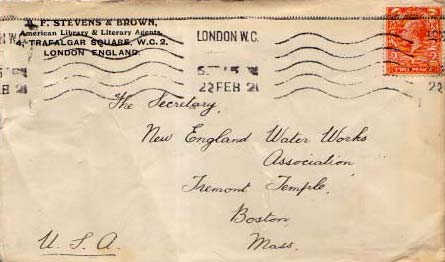 B. F. STEVENS & BROWN,
American Library & Literary Agents,
4, TRAFALGAR SQUARE, W.C. 2.
LONDON ENGLAND.
LONDON W.C.
5 15 PM
22 FEB 21
TWO PENCE
The Secretary,
New England Water Works
Association
Tremont Temple,
Boston,
Mass.
U. S. A.